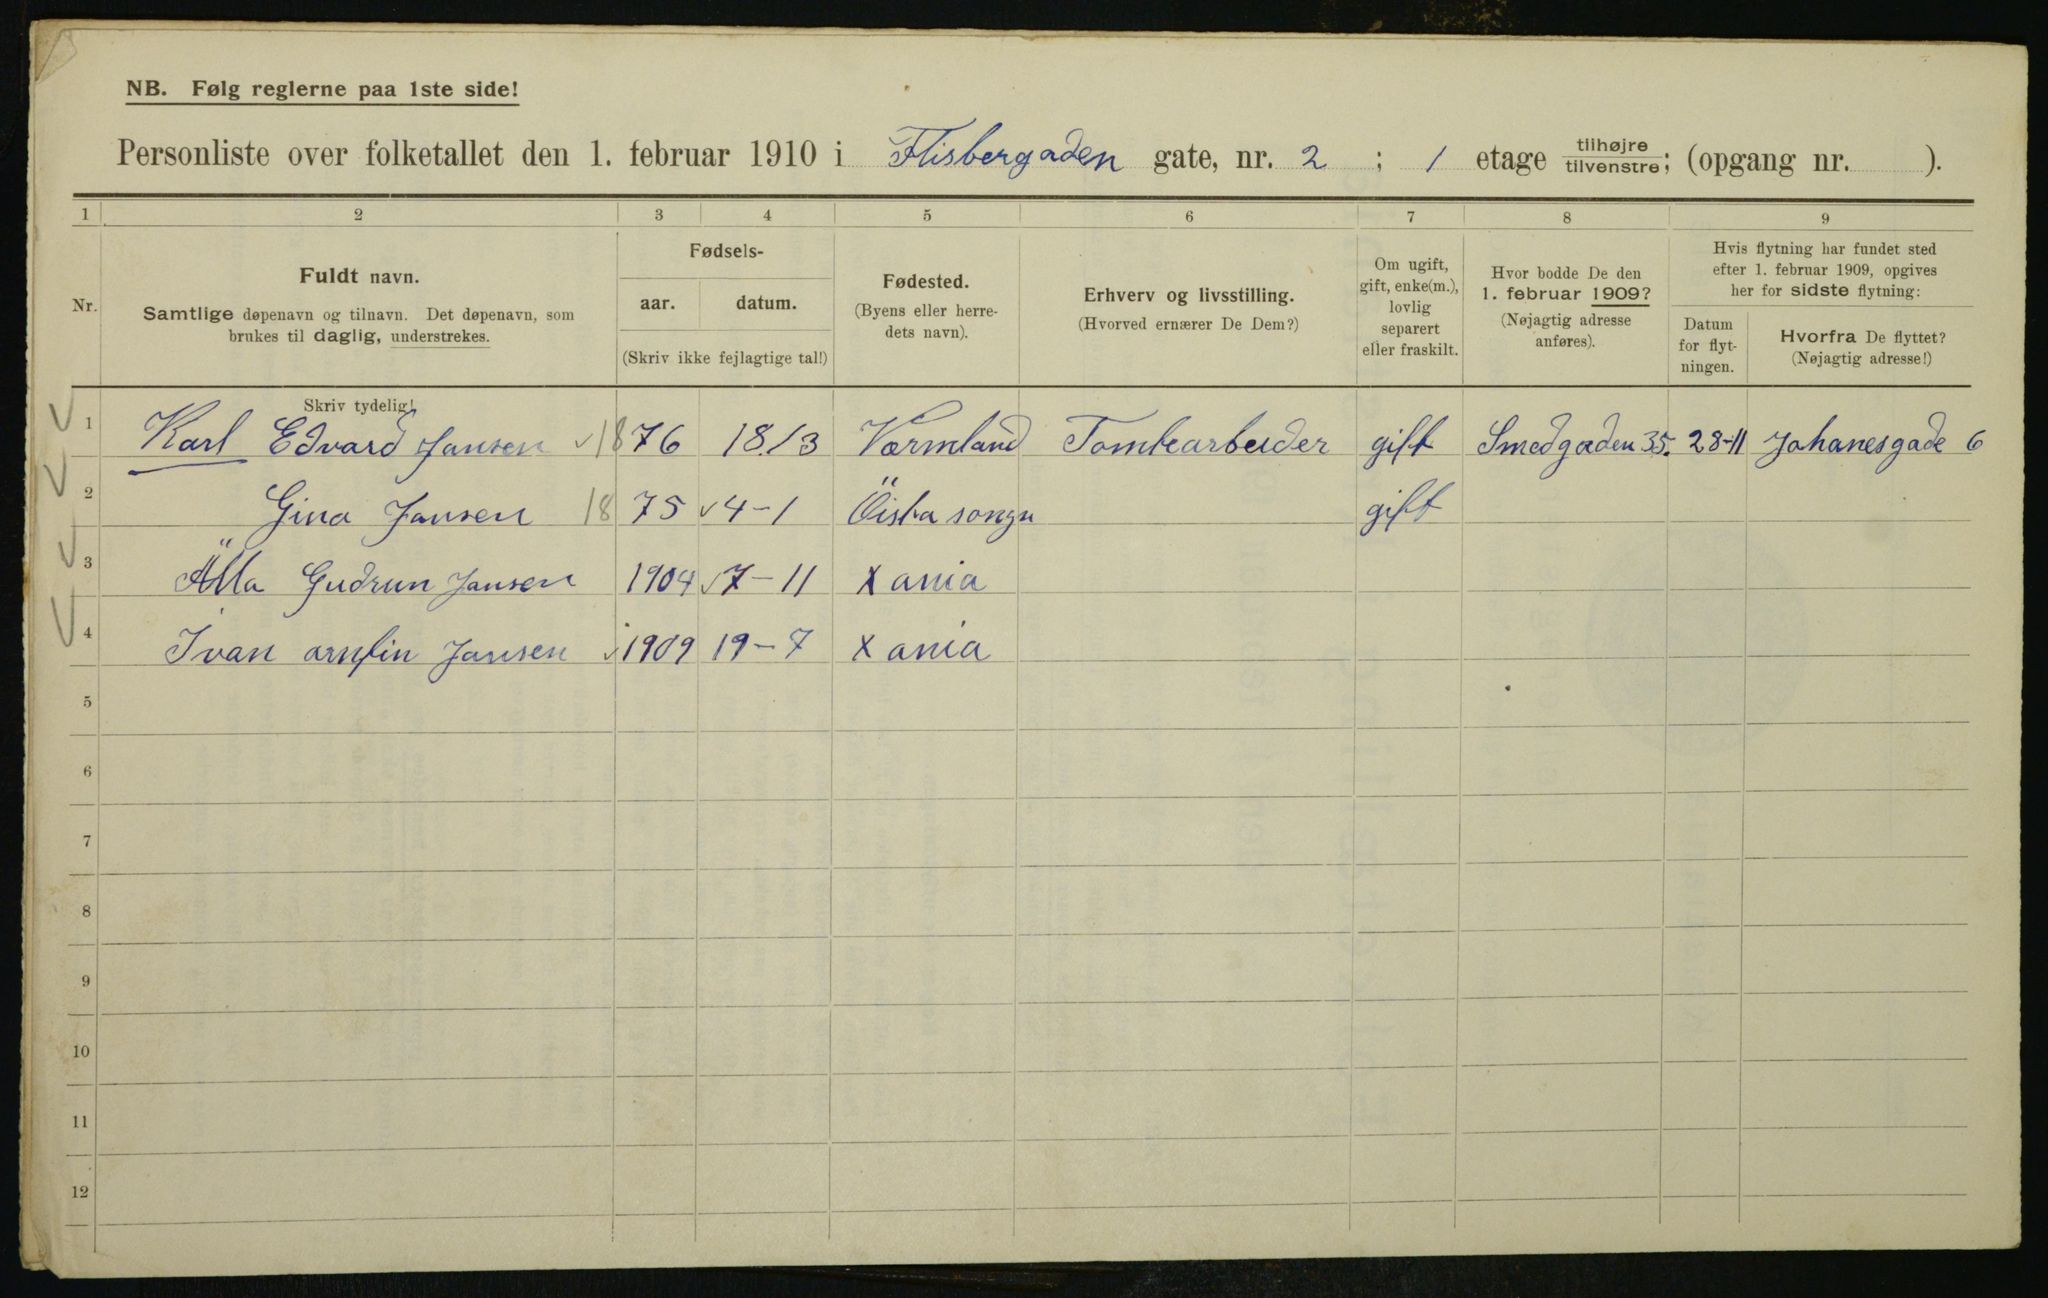 NB. Følg reglerne paa 1ste side!
Personliste over folketallet den 1. februar 1910 i Flisbergaden gate, nr. 2 ; 1 etage tilhøjre/tilvenstre; (opgang nr. ).
1 2 3 4 5 6 7 8 9
Nr.
Fuldt navn.
Samtlige døpenavn og tilnavn. Det døpenavn, som
brukes til daglig, understrekes.
Skriv tydelig!
Fødsels-
aar. datum.
(Skriv ikke fejlagtige tal!)
Fødested.
(Byens eller herre-
dets navn).
Erhverv og livsstilling.
(Hvorved ernærer De Dem?)
Om ugift,
gift, enke(m.),
lovlig
separert
eller fraskilt.
Hvor bodde De den
1. februar 1909?
(Nøjagtig adresse
anføres).
Hvis flytning har fundet sted
efter 1. februar 1909, opgives
her for sidste flytning:
Datum
for flyt-
ningen.
Hvorfra De flyttet?
(Nøjagtig adresse!)
1 Karl Edvard Jansen 1876 18/3 Værmland Tomtearbeider gift Smedgaden 35. 28-11 Johanesgade 6
2 Gina Jansen 1875 4-1 gift
3 Gudrun Jansen 1904 7-11 Xania
4 Ivan arnfin Jansen 1909 19-7 Xania
5
6
7
8
9
10
11
12